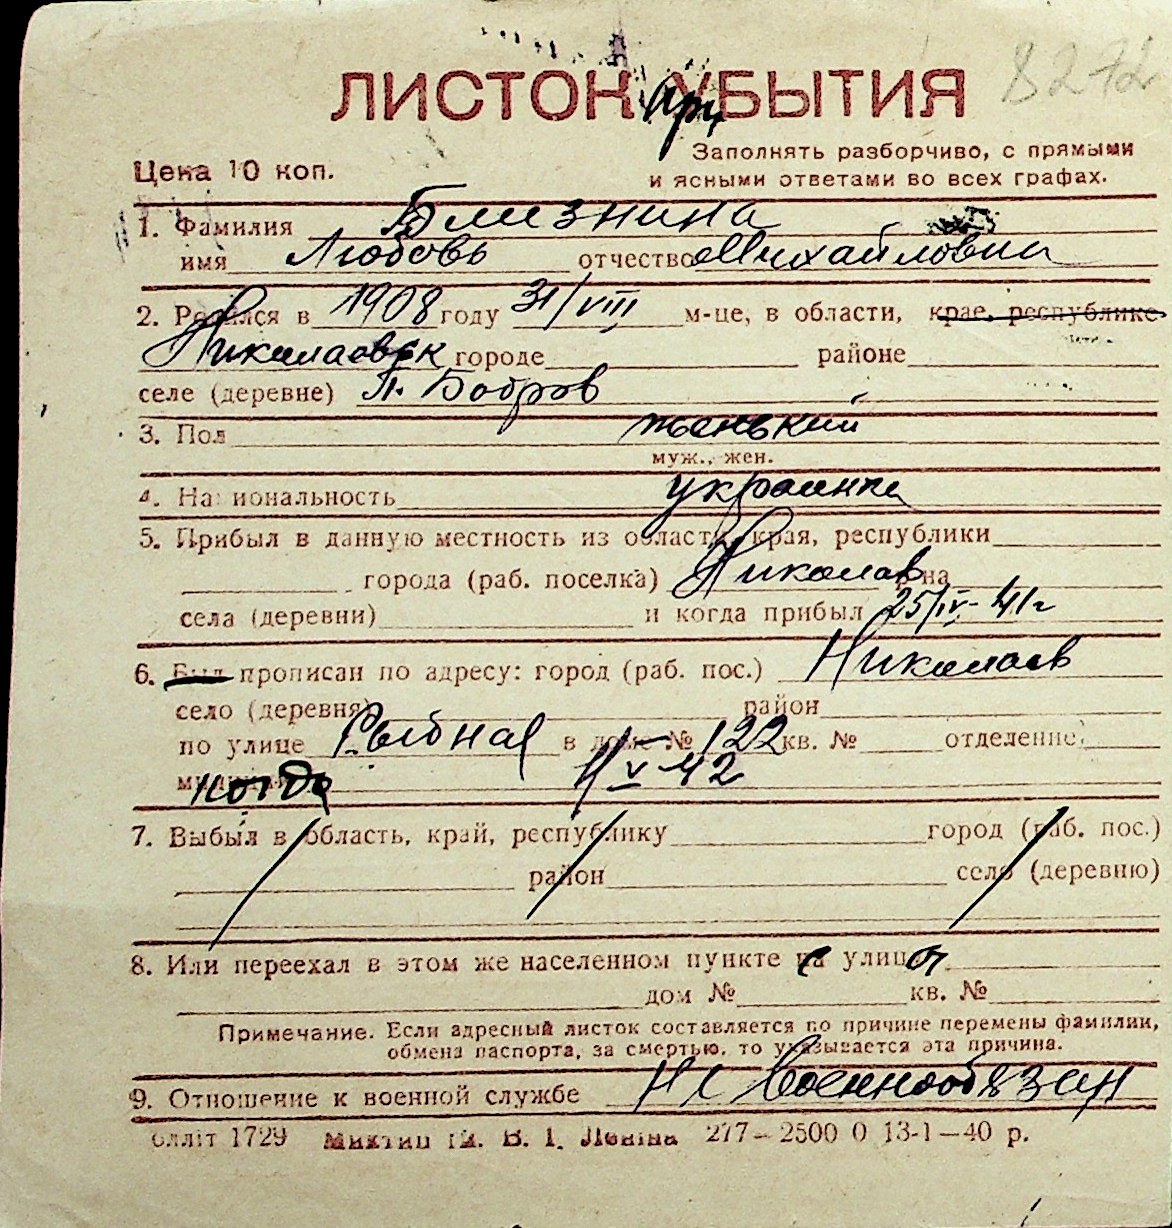 8272
ЛИСТОК При УБЫТИЯ
Цена 10 коп.
Заполнять разборчиво, с прямыми
и ясными ответами во всех графах.
1. Фамилия Близнина
имя Любовь отчество Михайловна
2. Родился в 1908 году 31/VIII м-це, в области, крае, республике
Николаевск городе районе
селе (деревне) П. Бобров
3. Пол женский
муж., жен.
4. Национальность украинка
5. Прибыл в данную местность из области, края, республики
города (раб. поселка) Николаев
села (деревни) и когда прибыл 25/IV-41г
6. Был прописан по адресу: город (раб. пос.) Николаев
село (деревня) район
по улице Рыбная в доме № 122 кв. № отделение
когда V-42
7. Выбыл в область, край, республику город (раб. пос.)
район село (деревню)
8. Или переехал в этом же населенном пункте с улицы
дом № кв. №
Примечание. Если адресный листок составляется по причине перемены фамилии,
обмена паспорта, за смертью, то указывается эта причина.
9. Отношение к военной службе Не военнообязан
Облліт 1729 ім. В. І. Леніна 277—2500 0 13-1—40 р.